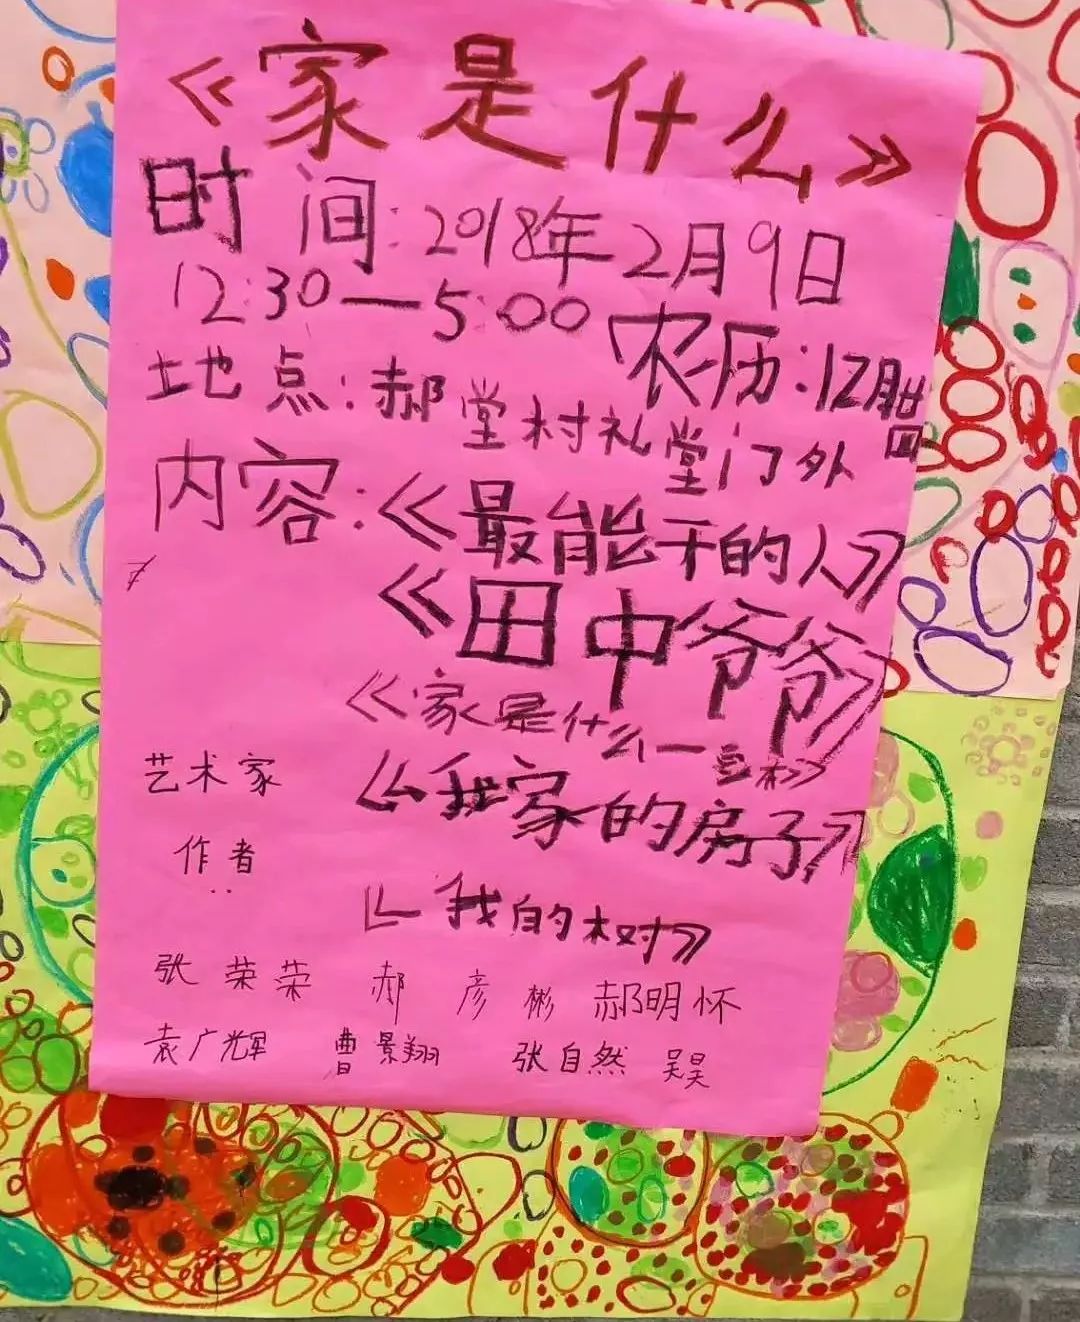 《家是什么》
时间:2018年2月9日
12:30—5:00
农历:12月
地点:郝堂村礼堂门外
内容:《最能干的人》
《田中爷爷》
《家是什么一
《我家的房子》
《我的树》
艺术家
作者
张荣荣 郝彦彬 郝明怀
袁广辉 曹景翔 张自然 吴昊